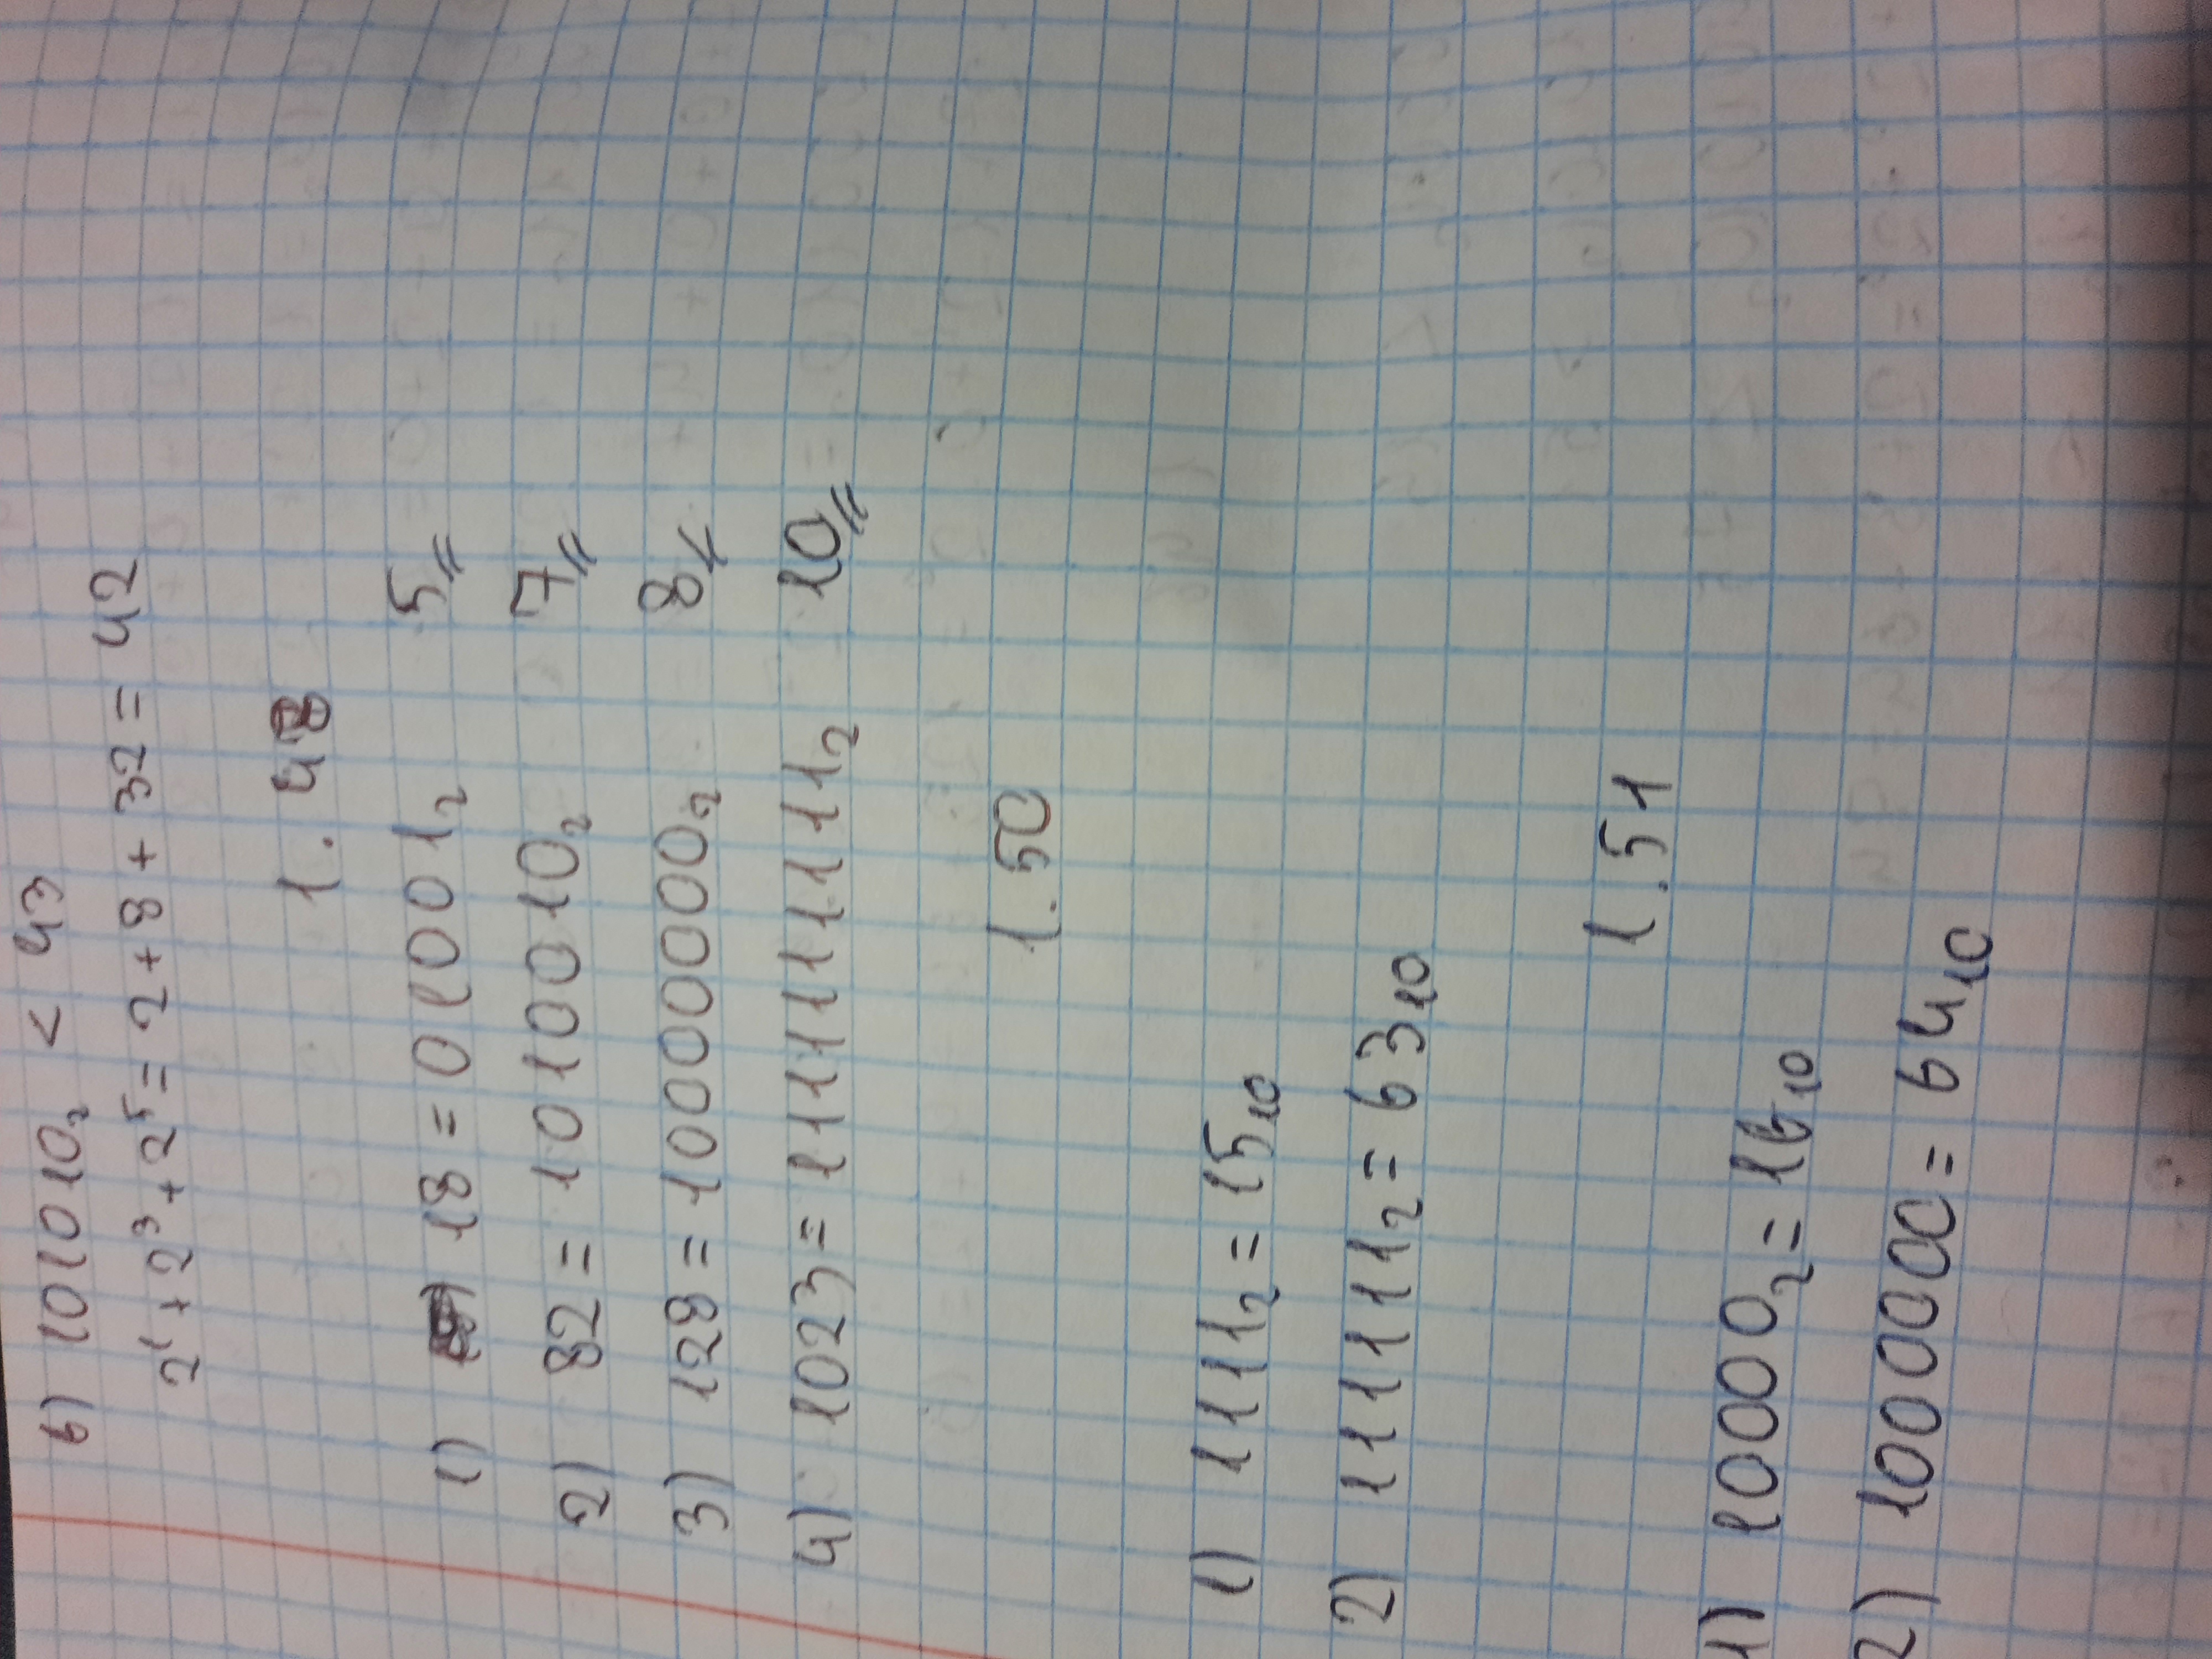 6) 101010₂ < 43
2¹ + 2³ + 2⁵ = 2 + 8 + 32 = 42
1.48
1) 18 = 01001₂ 5
2) 82 = 1010010₂ 7
3) 128 = 10000000₂ 8
4) 1023 = 1111111111₂ 10
1.50
1) 1111₂ = 15₁₀
2) 111111₂ = 63₁₀
1.51
1) 10000₂ = 16₁₀
2) 1000000 = 64₁₀